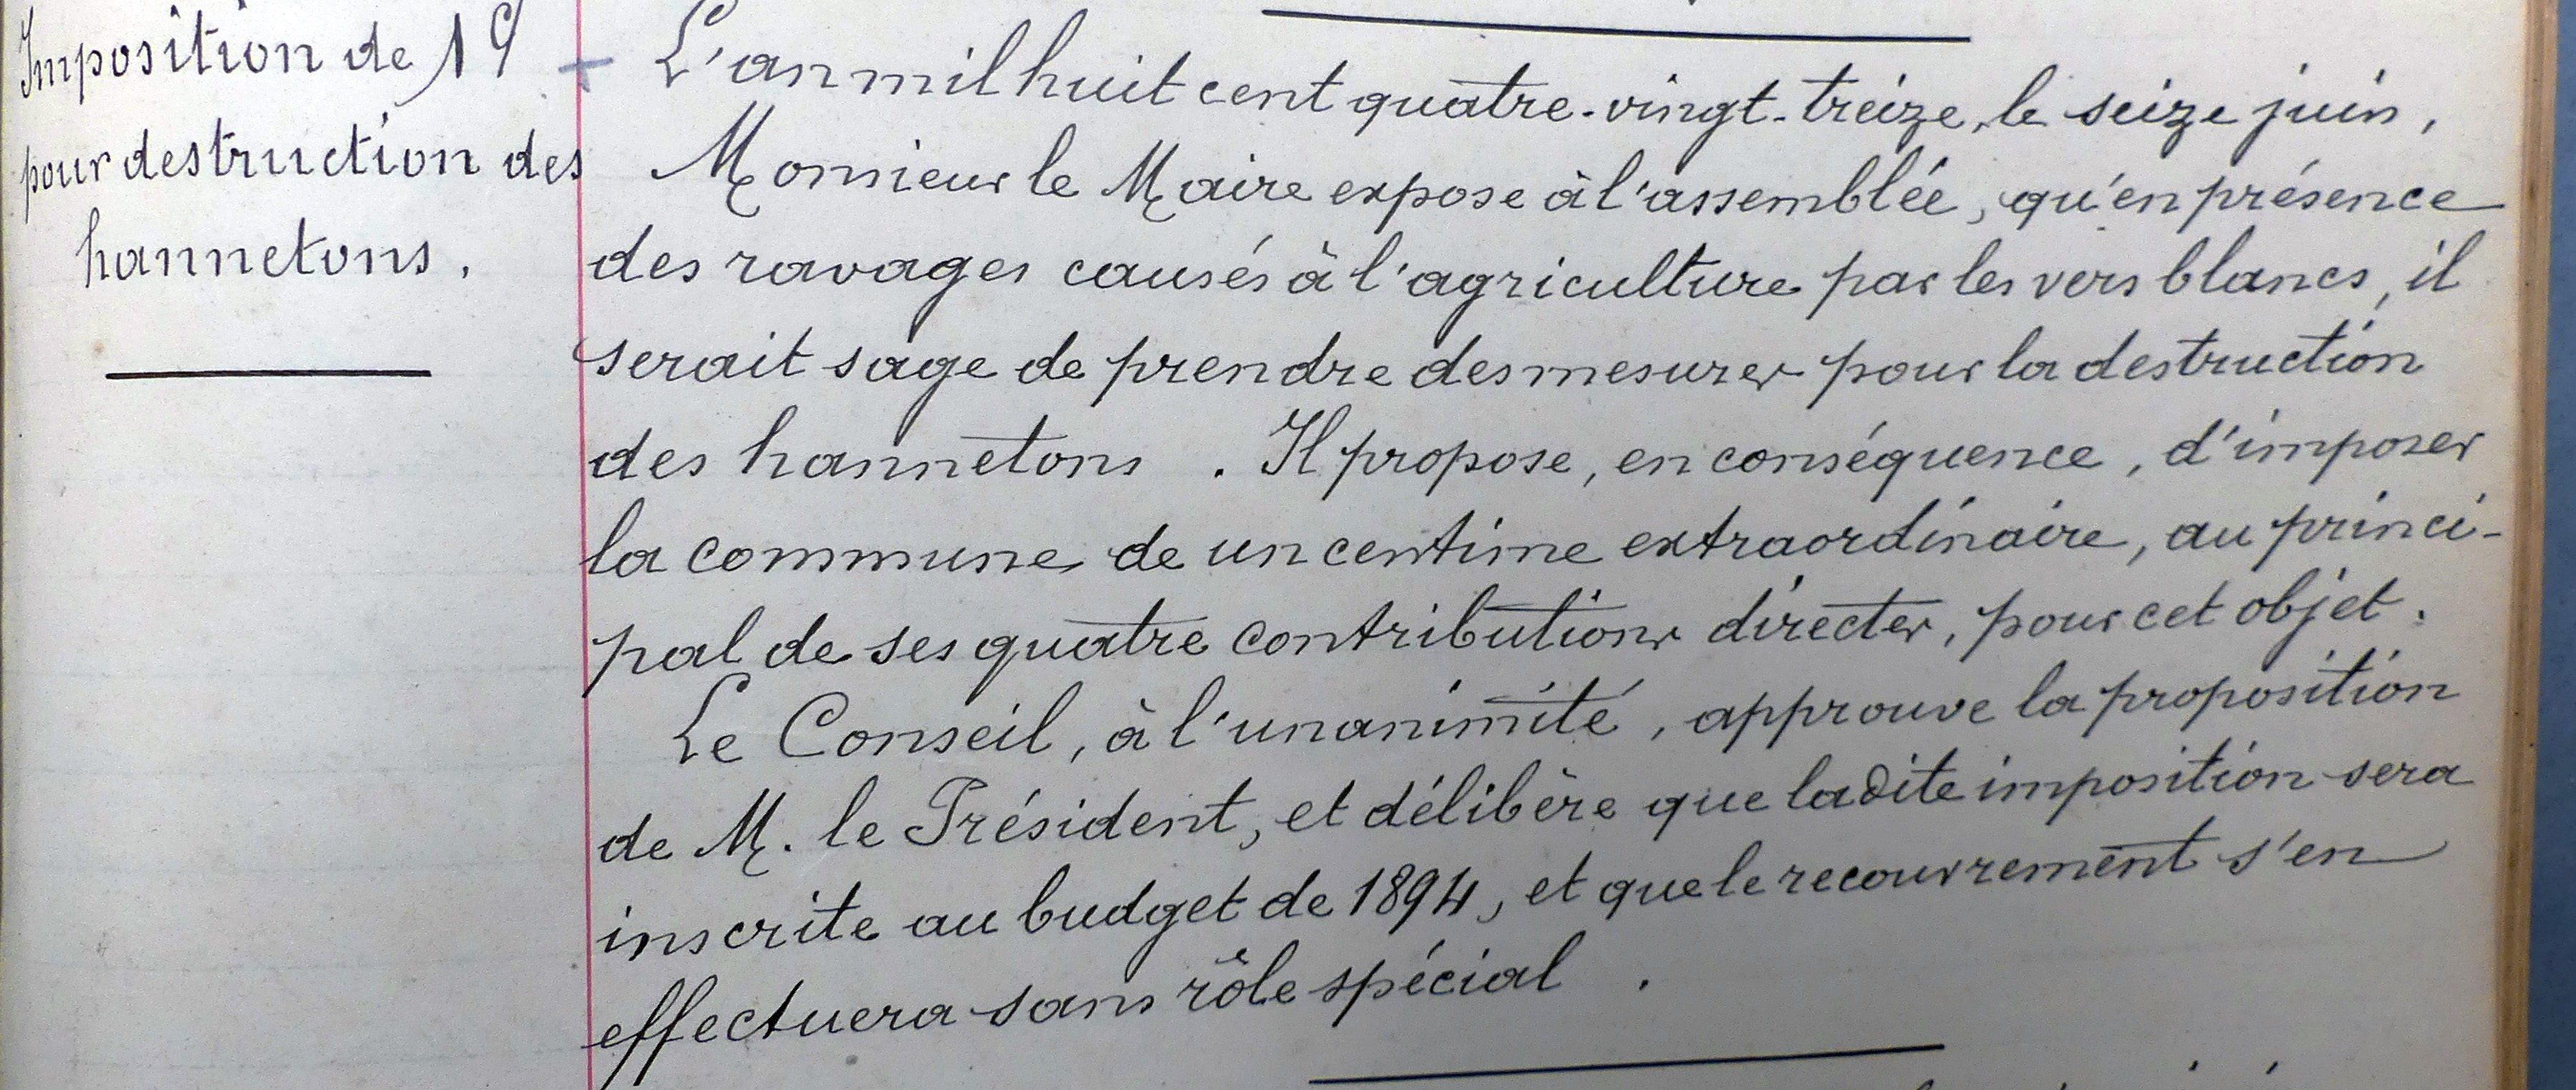 Imposition de 1 c
pour destruction des
hannetons.
L'an mil huit cent quatre-vingt-treize, le seize juin,
Monsieur le Maire expose à l'assemblée, qu'en présence
des ravages causés à l'agriculture par les vers blancs, il
serait sage de prendre des mesures pour la destruction
des hannetons. Il propose, en conséquence, d'imposer
la commune de un centime extraordinaire, au princi-
pal de ses quatre contributions directes, pour cet objet.
Le Conseil, à l'unanimité, approuve la proposition
de M. le Président, et délibère que ladite imposition sera
inscrite au budget de 1894, et que le recouvrement s'en
effectuera sans rôle spécial.